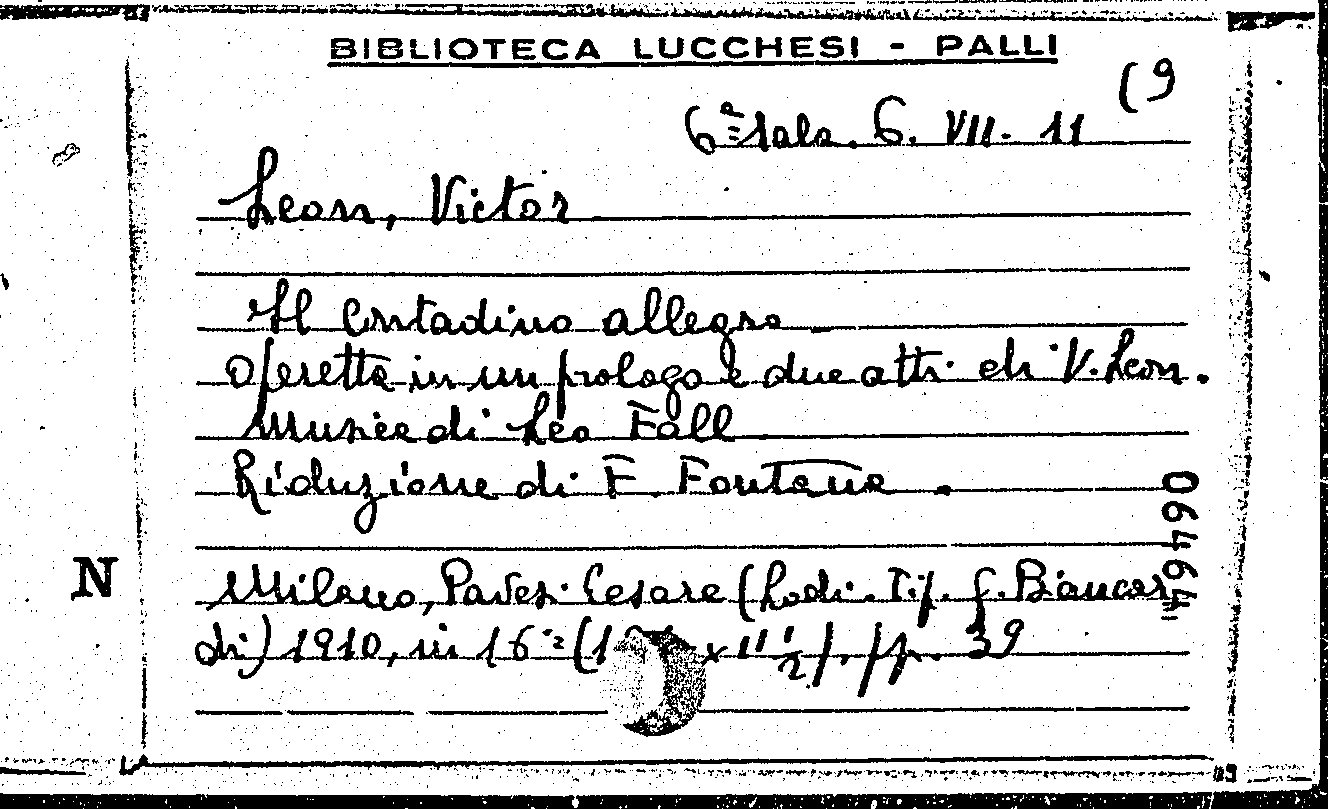 BIBLIOTECA LUCCHESI - PALLI
(9
6ª Sala. 6. VII. 11
Leon, Victor
Il Contadino allegro
Operetta in un prologo e due atti di V. Leon.
Musica di Leo Fall
Riduzione di F. Fontana.
N
Milano, Pavesi Cesare (Lodi. Tip. G. Biancar
di) 1910, in 16º x 11 1/2). pp. 39
06494